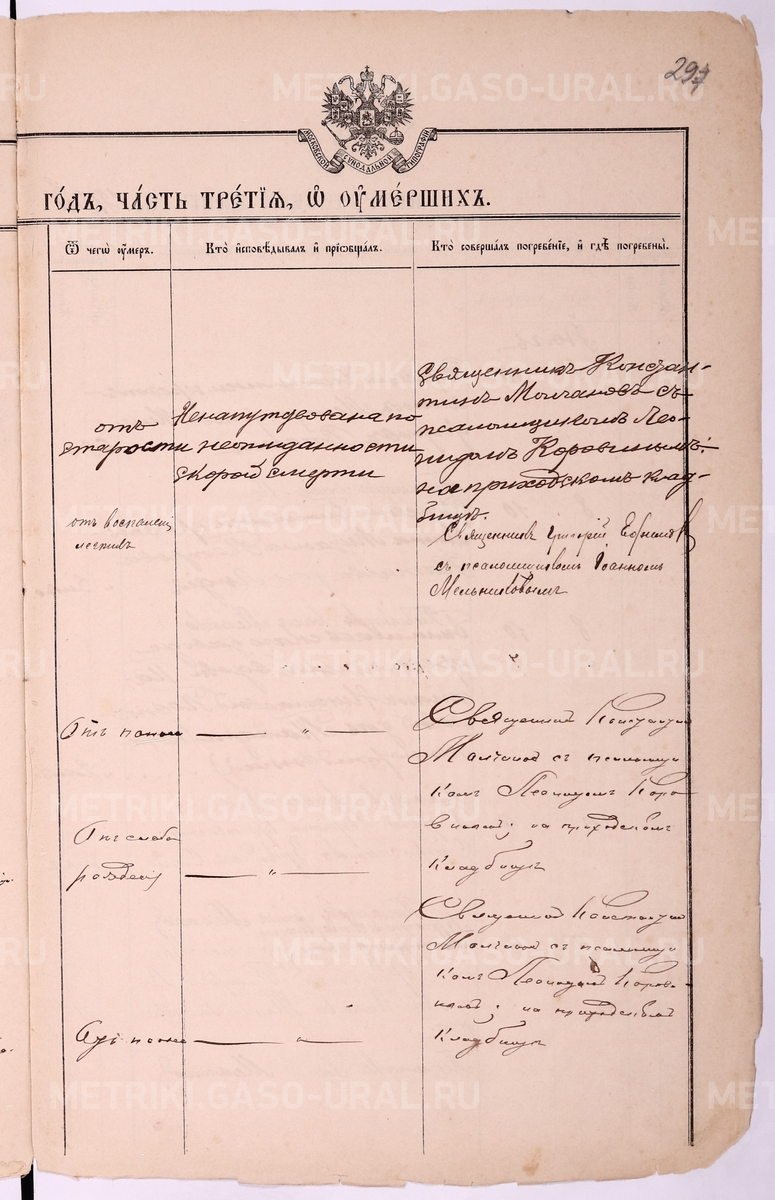 297
МОСКОВСКОЙ СѴНОДАЛЬНОЙ ТИПОГРАФІИ
ГО́ДЪ, ЧА́СТЬ ТРЕ́ТІѦ, Ѡ҆ ОУ҆МЕ́РШИХЪ.
Ѿ чегѡ̀ оу҆́меръ.
Кто̀ и҆сповѣ́дывалъ и҆ прїѡбща́лъ.
Кто̀ соверша́лъ погребе́нїе, и҆ гдѣ̀ погребены̀.
отъ
старости
Ненапутствована по
неожиданности
скорой смерти
Священникъ Констан-
тинъ Молчановъ съ
псаломщикомъ Лео-
нидомъ Коровинымъ:
на приходскомъ клад-
бищѣ.
отъ воспаленія
легкихъ
Священникъ Григорій
съ псаломщикомъ Іоанномъ
Мельниковымъ
Отъ поноса
— „ —
Священникъ Константинъ
Молчановъ съ псаломщи
комъ Леонидомъ Коро
винымъ; на приходскомъ
кладбищѣ
Отъ слабо
рожденія
— „ —
Священникъ Константинъ
Молчановъ съ псаломщи
комъ Леонидомъ Корови-
нымъ; на приходскомъ
кладбищѣ
Отъ поноса
— „ —
METRIKI.GASO-URAL.RU